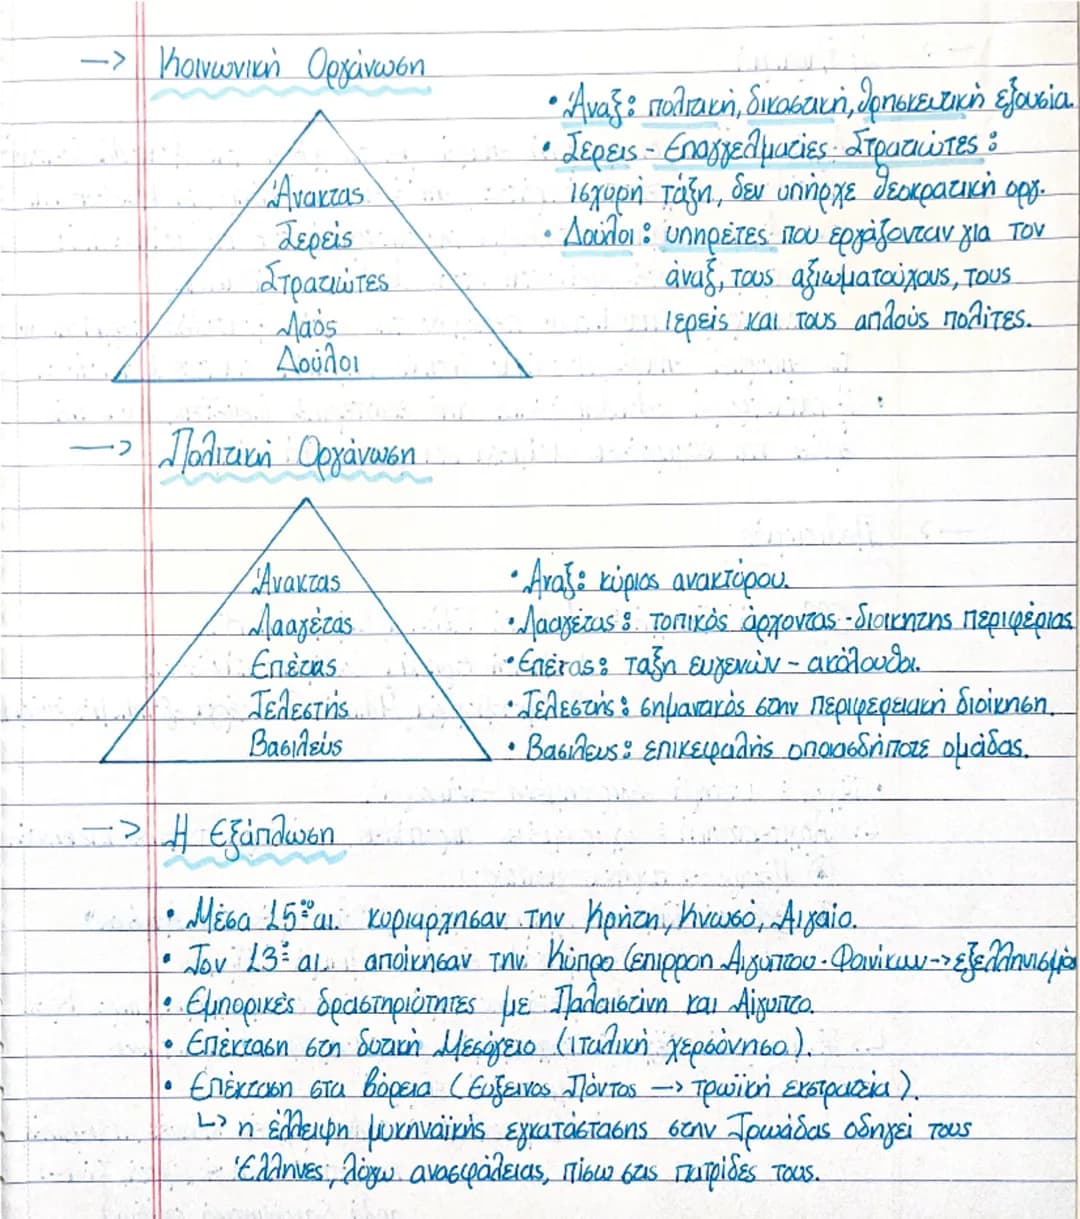 → Κοινωνική Οργάνωση
Άνακτας
Ιερείς
Στρατιώτες
Λαός
Δούλοι
• Άναξ: πολιτική, δικαστική, θρησκευτική εξουσία.
• Ιερεις - Επαγγελματίες Στρατιώτες:
ισχυρή τάξη, δεν υπήρχε θεοκρατική οργ.
• Δούλοι: υπηρέτες που εργάζονταν για τον
άναξ, τους αξιωματούχους, τους
ιερείς και τους απλούς πολίτες.
→ Πολιτική Οργάνωση
Άνακτας
Λααγέτας
Επέτας
Τελεστής
Βασιλεύς
• Αναξ: κύριος ανακτόρου.
• Λααγέτας: τοπικός άρχοντας - διοικητης περιφέριας
• Επέτας: ταξη ευγενών - ακόλουθοι.
• Τελεστής: σημαντικός στην περιφερειακή διοίκηση.
• Βασιλευς: επικεφαλής οποιασδήποτε ομάδας.
→ Η Εξάπλωση
• Μέσα 15ου αι. κυριαρχησαν την Κρήτη, Κνωσό, Αιγαίο.
• Τον 13ο αι. αποίκησαν την Κύπρο (επιρροη Αιγύπτου - Φοινίκων → εξελληνισμός
• Εμπορικές δραστηριότητες με Παλαιστίνη και Αίγυπτο.
• Επέκταση στη δυτική Μεσόγειο (ιταλική χερσόνησο).
• Επέκταση στα βόρεια (Εύξεινος Πόντος → τρωϊκή εκστρατεία).
↳ η έλλειψη μυκηναϊκής εγκατάστασης στην Τρωάδας οδηγεί τους
Έλληνες, λόγω ανασφάλειας, πίσω στις πατρίδες τους.